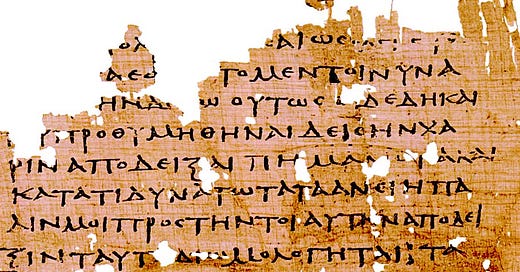 ΑΙΩ
ΤΟΜΕΝΤΟΙΝΥΝΑ
ΗΝΔ Ω ΟΥΤΩϹ ΔΕΔΗΚΑΙ
ΠΡΟΘΥΜΗΘΗΝΑΙΔΕΙϹΗΝΧΑ
ΡΙΝΑΠΟΔΕΙΞΑΙΠΗΜΑΛ
ΚΑΤΑΤΙΔΥΝΑΤΩΤΑΤΑΑΝΕΙΗΠΑ
ΛΙΝΜΟΙΠΡΟϹΤΗΝΤΟΙΑΥΤΗΝΑΠΟΔΕΙ
ΞΙΝΤΑΥΤΑΔΙΟΜΟΛΟΓΗΤΑΙΤΑ